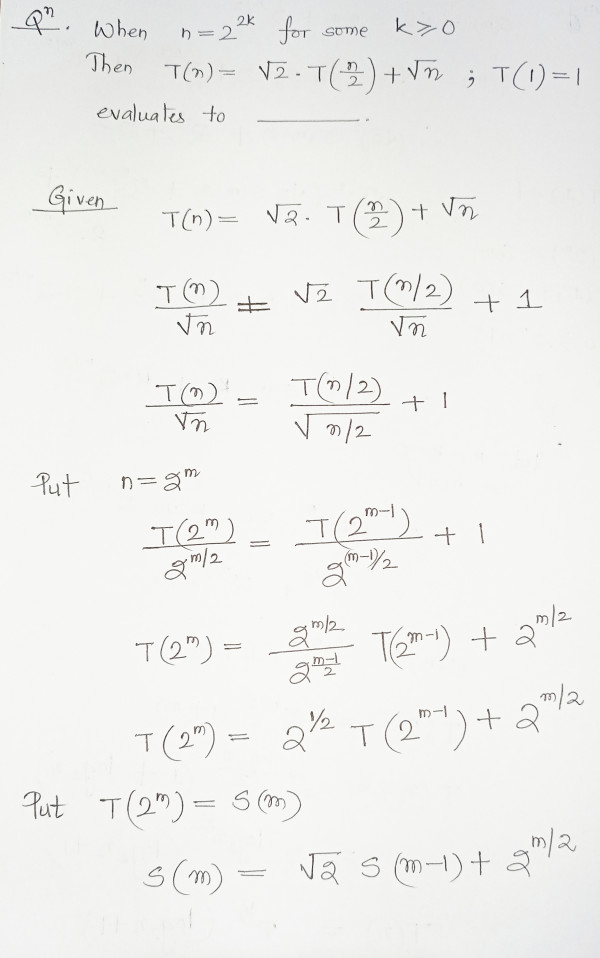 Qⁿ. When n = 2^{2k} for some k ≥ 0
Then T(n) = √2 · T(n/2) + √n ; T(1) = 1
evaluates to ________.
Given T(n) = √2 · T(n/2) + √n
T(n)/√n = √2 T(n/2)/√n + 1
T(n)/√n = T(n/2)/√(n/2) + 1
Put n = 2^m
T(2^m)/2^{m/2} = T(2^{m-1})/2^{(m-1)/2} + 1
T(2^m) = 2^{m/2}/2^{(m-1)/2} T(2^{m-1}) + 2^{m/2}
T(2^m) = 2^{1/2} T(2^{m-1}) + 2^{m/2}
Put T(2^m) = S(m)
S(m) = √2 S(m-1) + 2^{m/2}